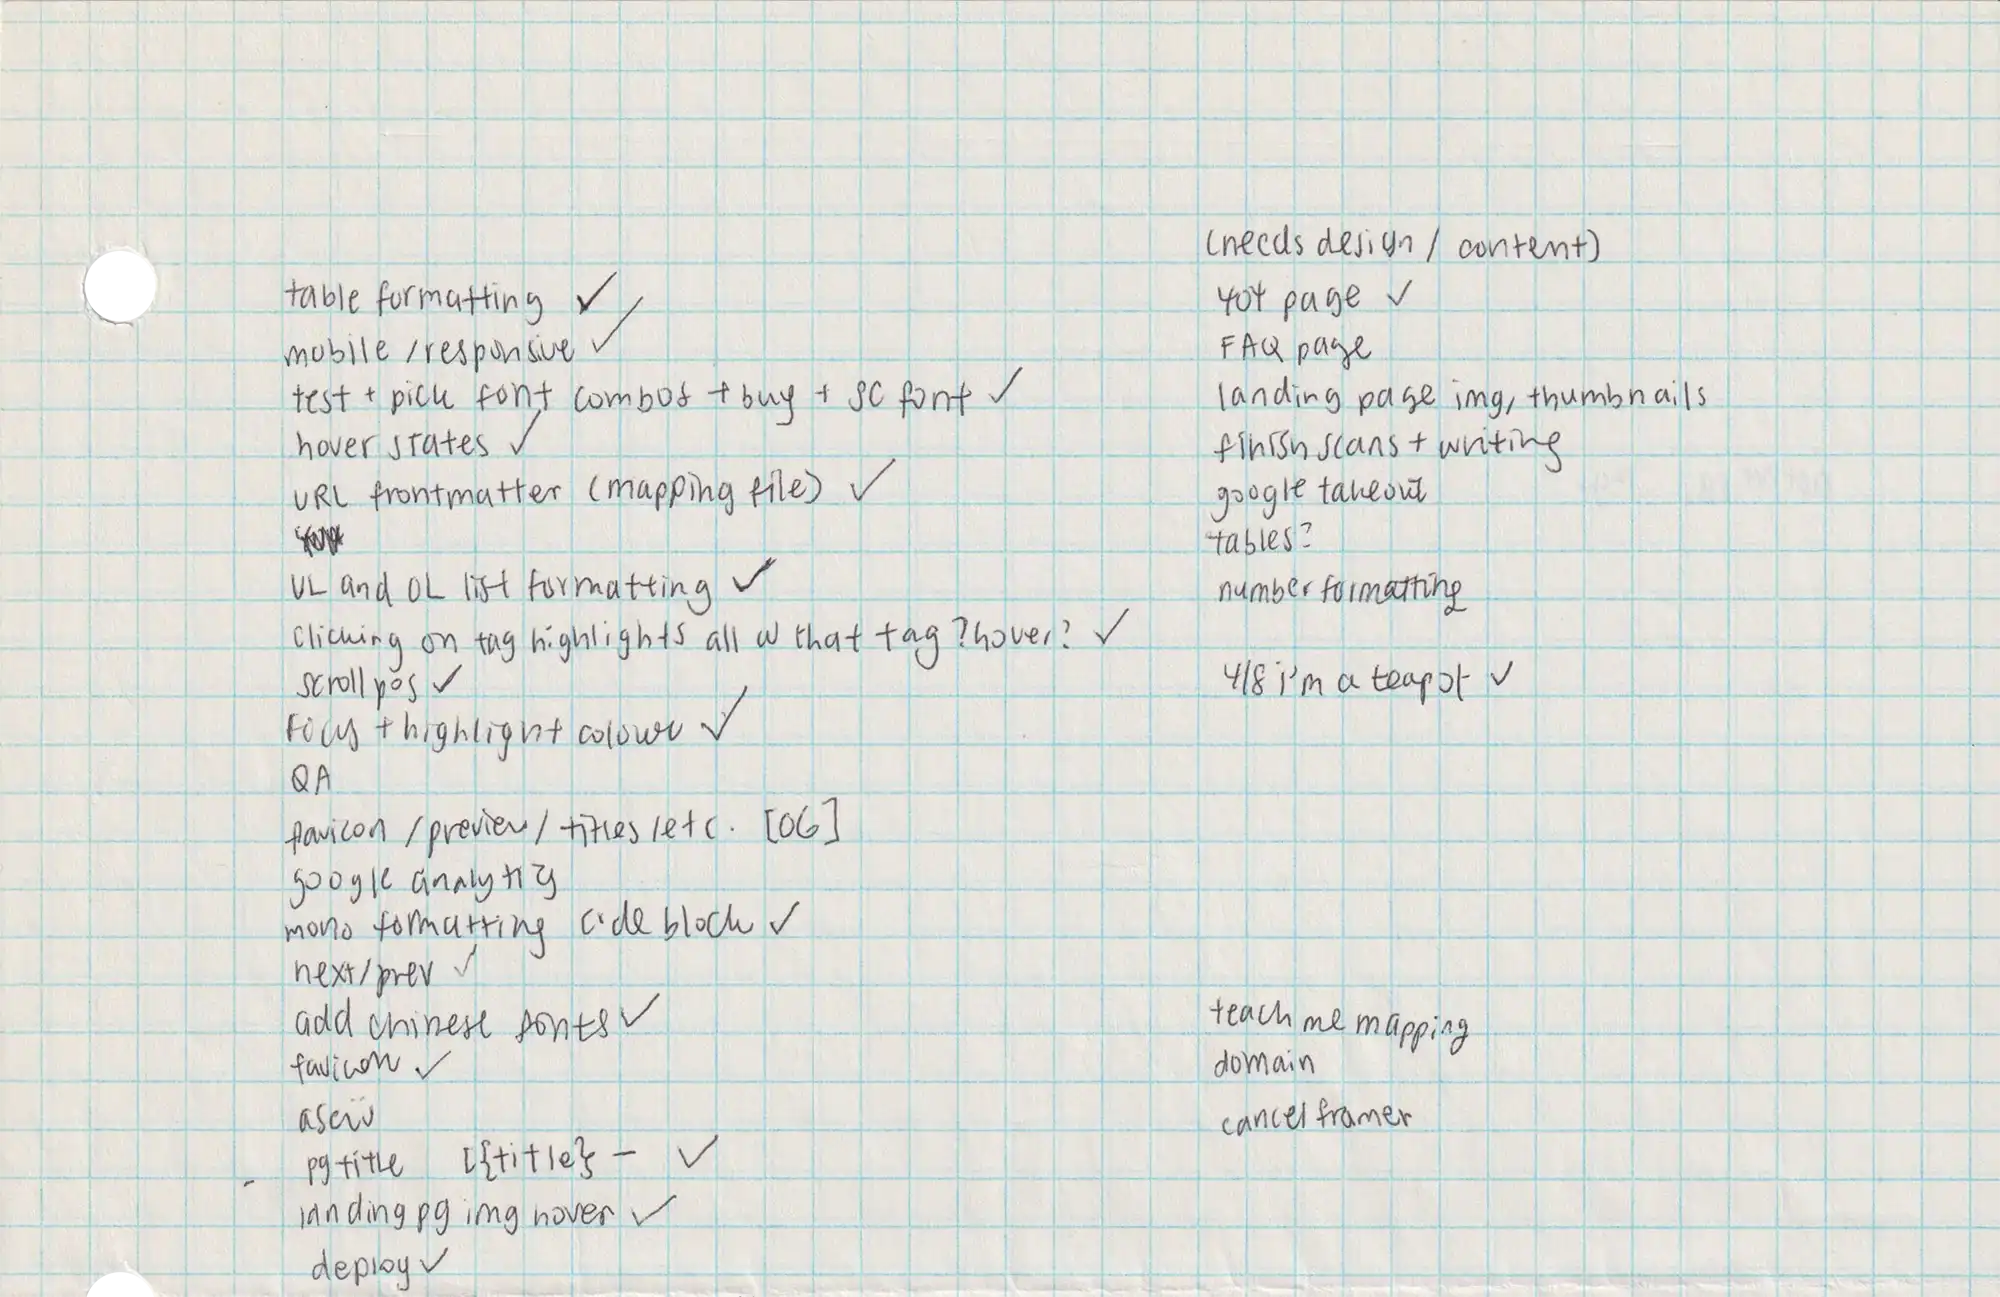 table formatting ✓
mobile /responsive ✓
test + pick font combos + buy + SC font ✓
hover states ✓
URL frontmatter (mapping file) ✓
UL and OL list formatting ✓
clicking on tag highlights all w that tag ? hover? ✓
scroll pos ✓
focus + highlight colour ✓
QA
favicon /preview/ titles /etc. [OG]
google analytics
mono formatting code block ✓
next/prev ✓
add chinese fonts ✓
favicon ✓
ascii
pg title [{title} - ✓
landing pg img hover ✓
deploy ✓
(needs design / content)
404 page ✓
FAQ page
landing page img, thumbnails
finish scans + writing
google takeout
tables?
number formatting
418 i'm a teapot ✓
teach me mapping
domain
cancel framer